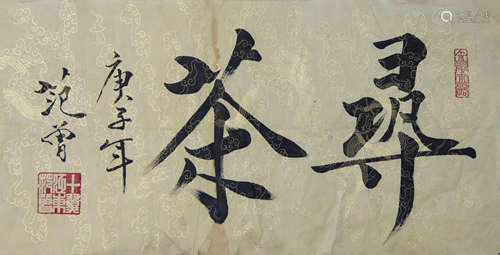 尋茶
庚子年
范曾